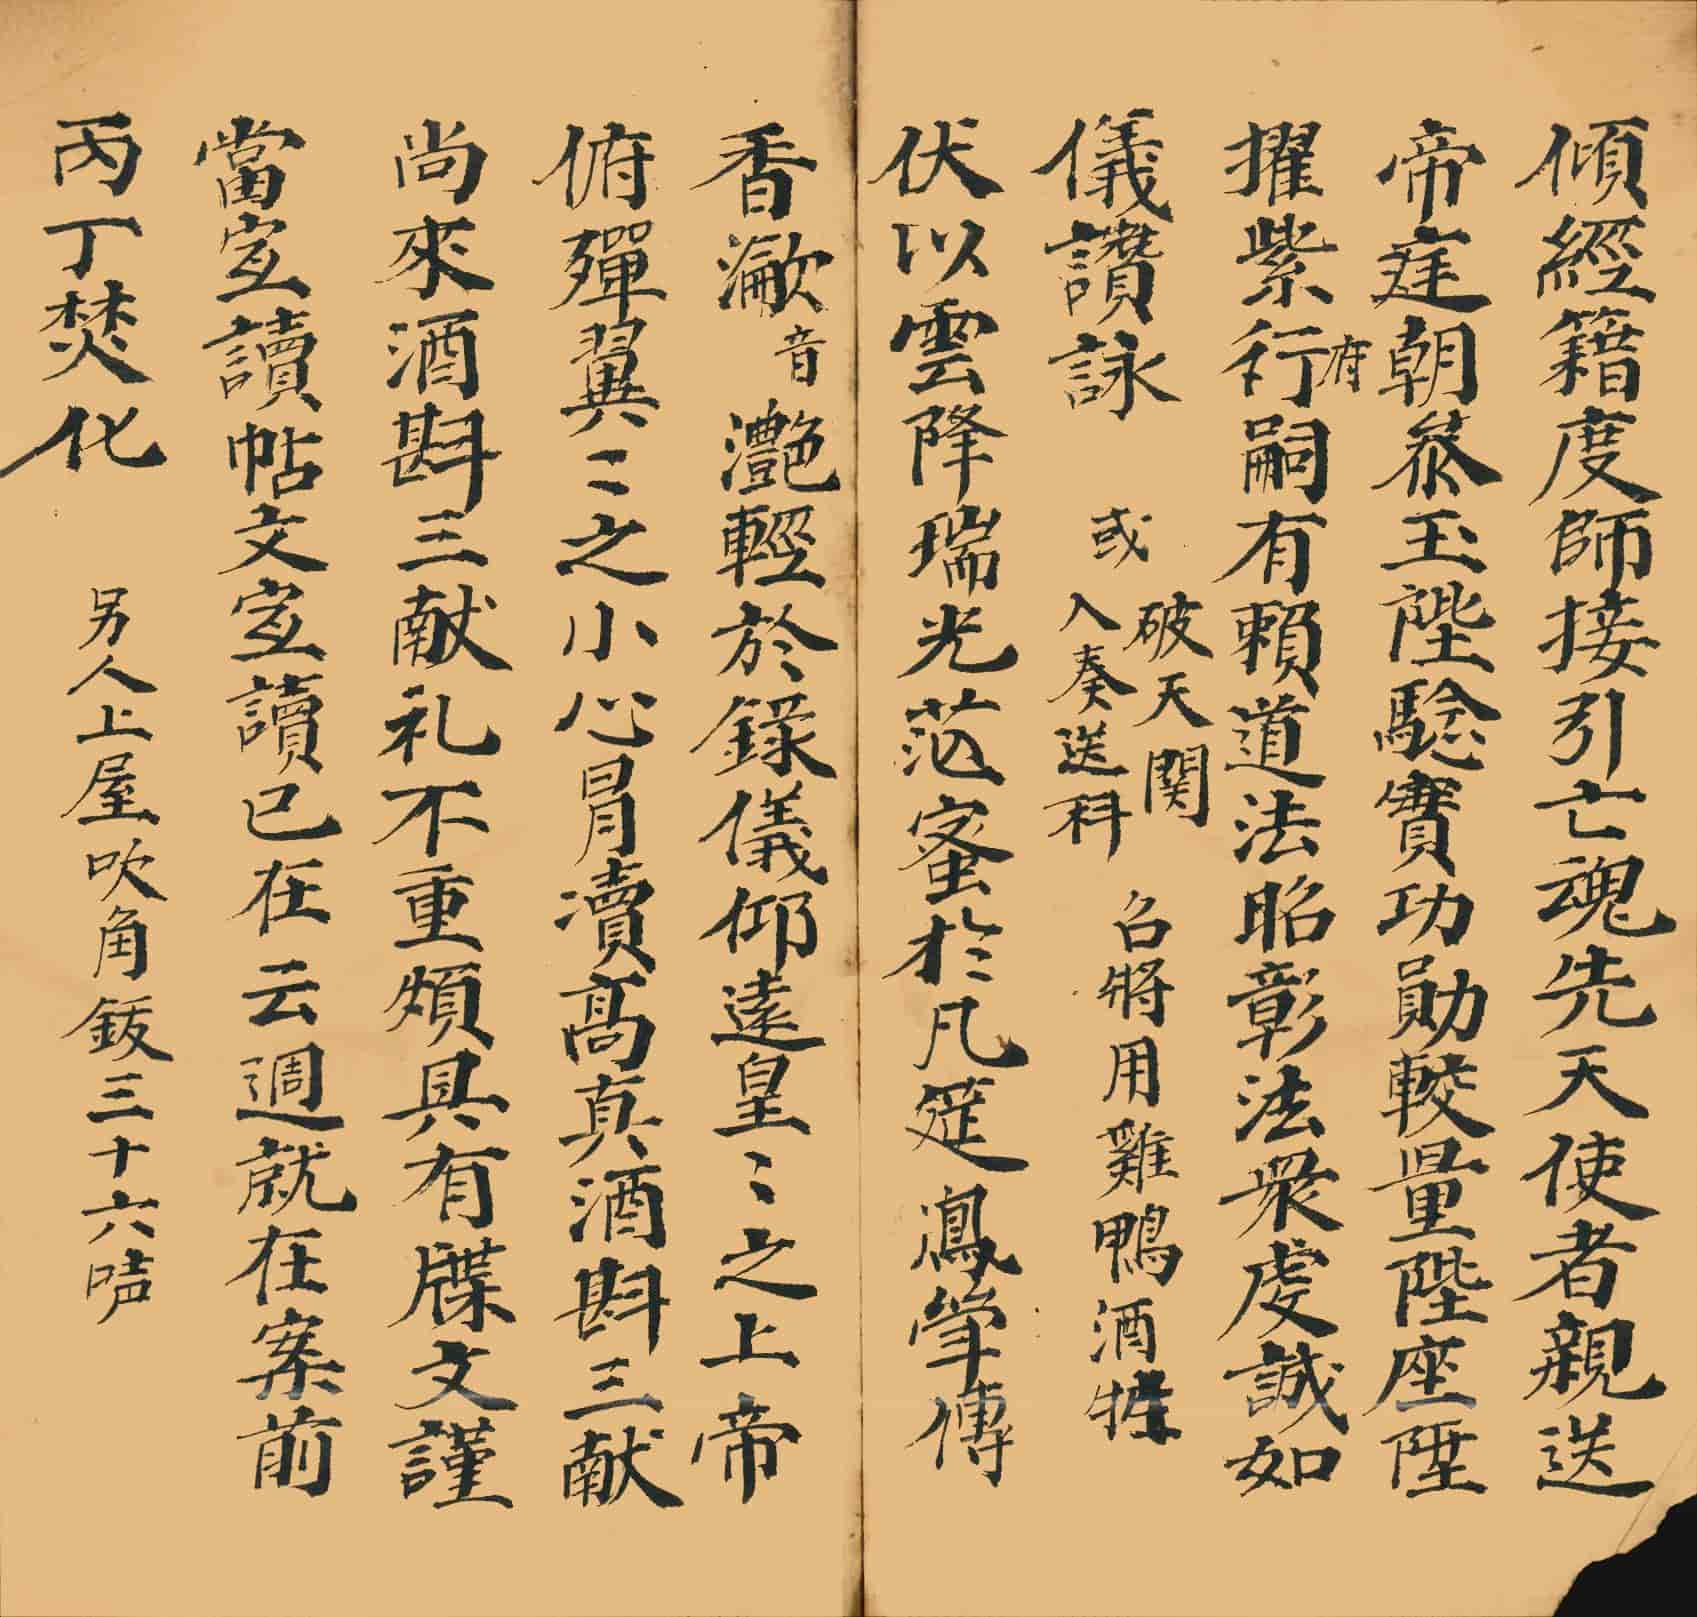 傾經籍度師接引亡魂先天使者親送
帝庭朝叅玉陛騐實功勛較量陛座陞
擢紫行府嗣有賴道法昭彰法衆虔誠如
儀讚詠 或 破天関 入奏送科 召將用雞鴨酒牲
伏以雲降瑞光范蜜於凡筵鳳傳
香瀜音灔輕於錄儀仰遠皇〻之上帝
俯殫翼〻之小心冐凟髙真酒斟三献
尚來酒斟三献礼不重頻具有牒文謹
當宣讀帖文宣讀已在云週就在案前
丙丁焚化 另人上屋吹角鈸三十六声